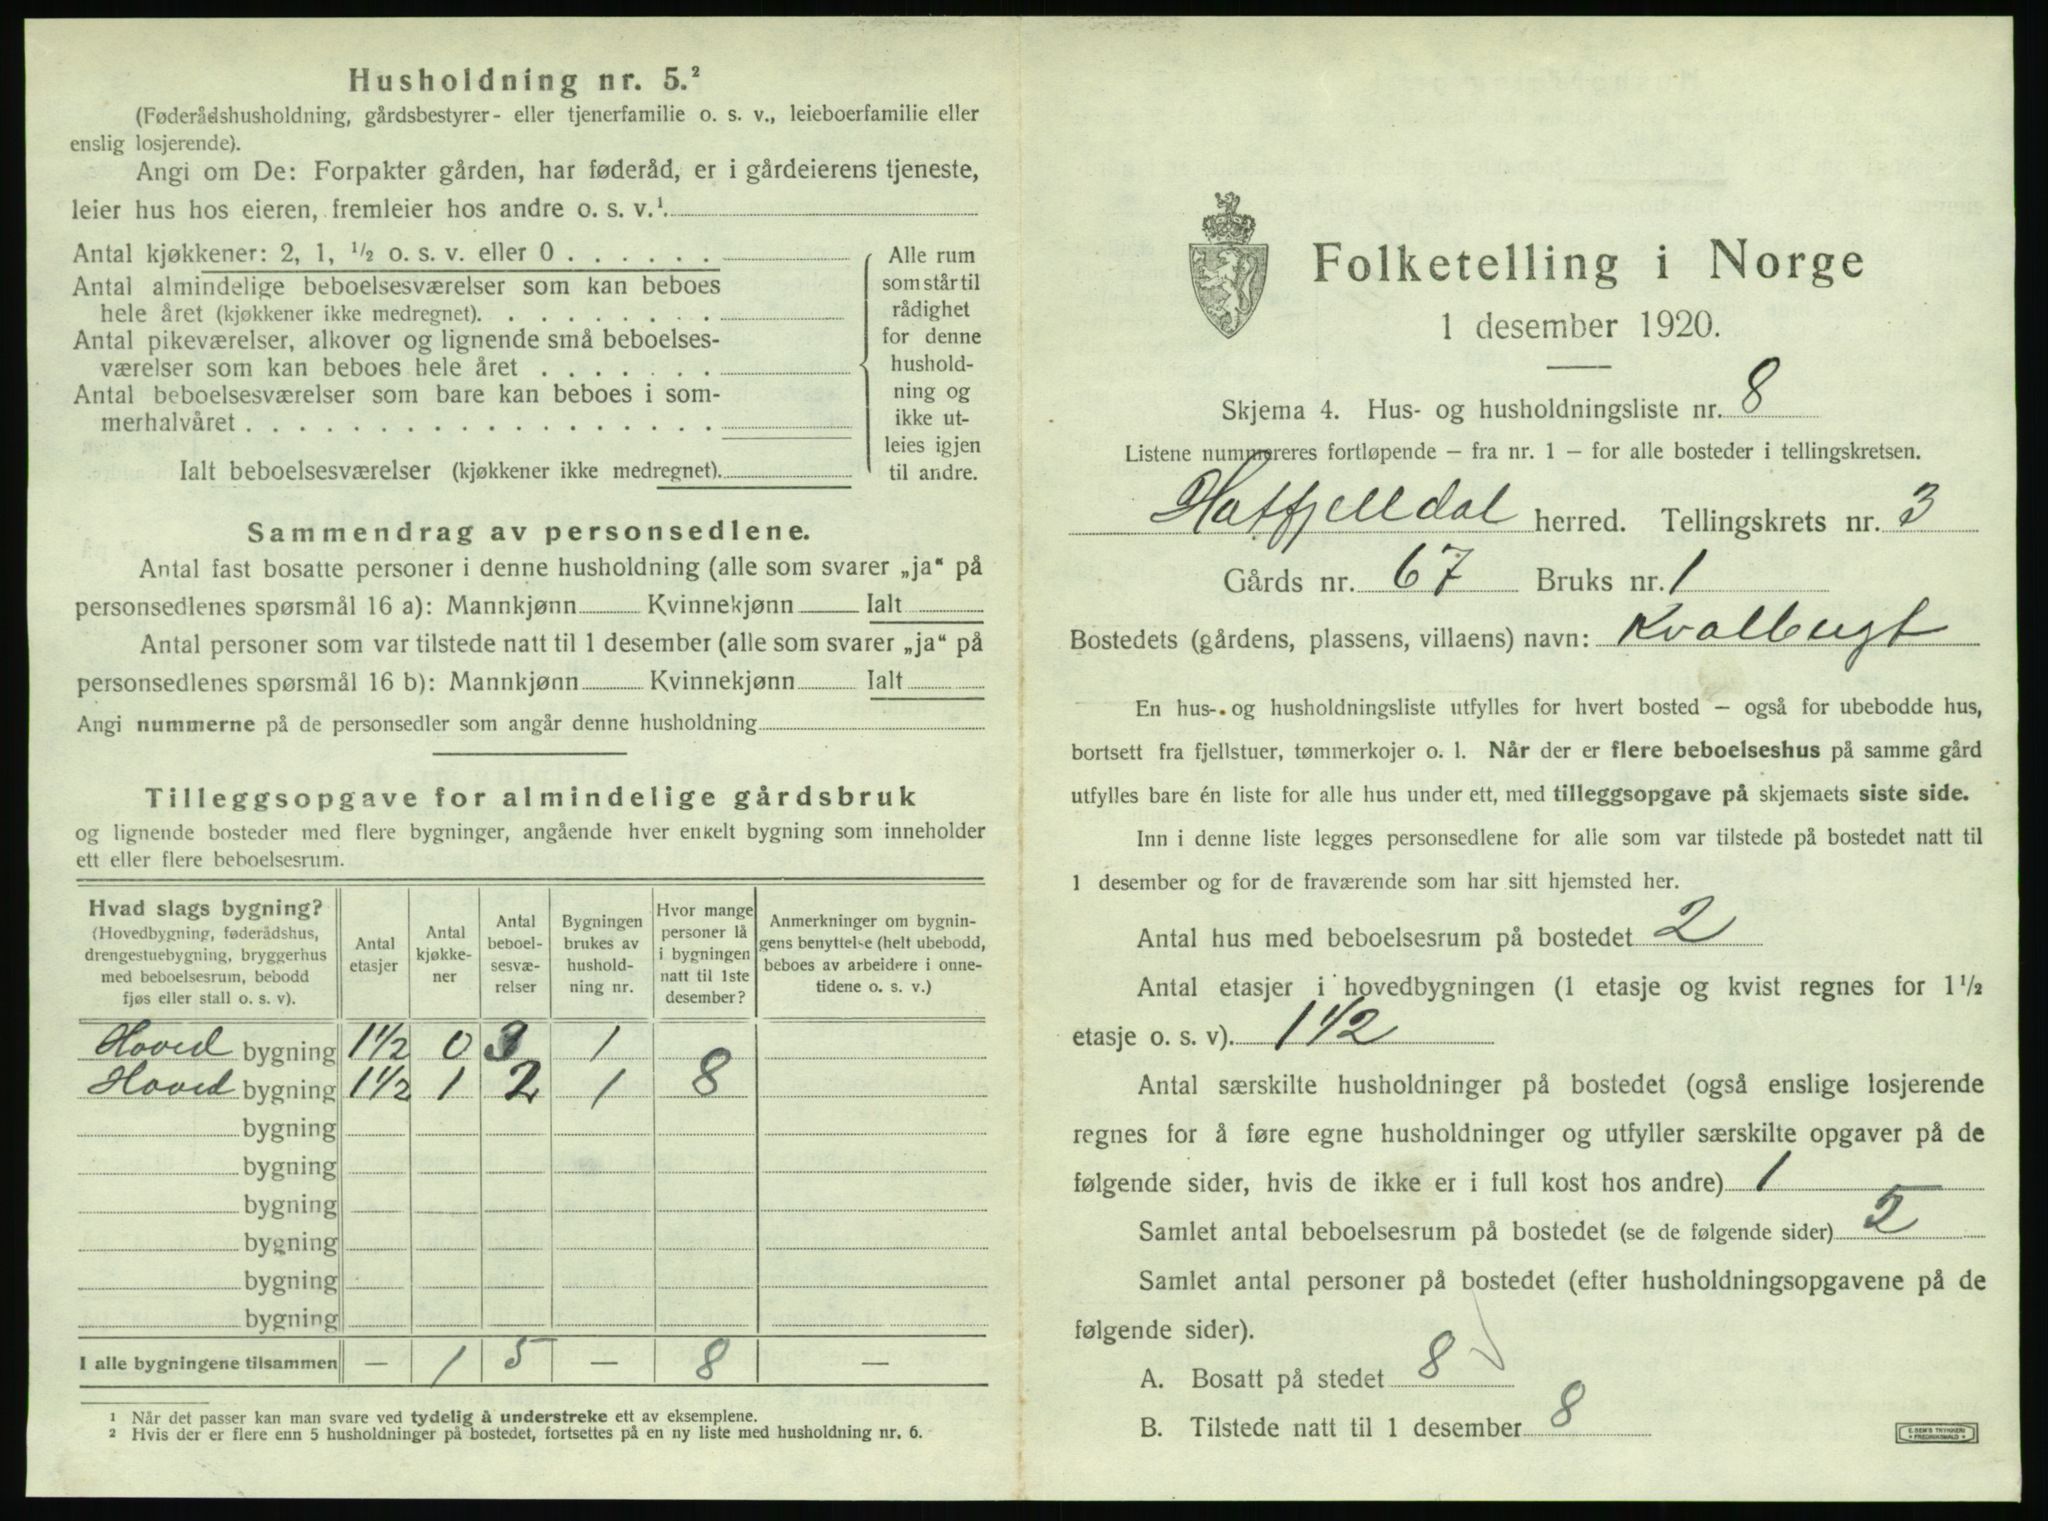 Husholdning nr. 5.²
(Føderådshusholdning, gårdsbestyrer- eller tjenerfamilie o. s. v., leieboerfamilie eller
enslig losjerende).
Angi om De: Forpakter gården, har føderåd, er i gårdeierens tjeneste,
leier hus hos eieren, fremleier hos andre o. s. v.¹.
Antal kjøkkener: 2, 1, ½ o. s. v. eller 0 . . . . . .
Antal almindelige beboelsesværelser som kan beboes
hele året (kjøkkener ikke medregnet). . . . . . . . .
Antal pikeværelser, alkover og lignende små beboelses-
værelser som kan beboes hele året . . . . . . .
Antal beboelsesværelser som bare kan beboes i som-
merhalvåret . . . . . . . . . . . . . . . . . .
Ialt beboelsesværelser (kjøkkener ikke medregnet).
Alle rum
som står til
rådighet
for denne
hushold-
ning og
ikke ut-
leies igjen
til andre.
Sammendrag av personsedlene.
Antal fast bosatte personer i denne husholdning (alle som svarer „ja“ på
personsedlenes spørsmål 16 a): Mannkjønn Kvinnekjønn Ialt
Antal personer som var tilstede natt til 1 desember (alle som svarer „ja“ på
personsedlenes spørsmål 16 b): Mannkjønn Kvinnekjønn Ialt
Angi nummerne på de personsedler som angår denne husholdning
Tilleggsopgave for almindelige gårdsbruk
og lignende bosteder med flere bygninger, angående hver enkelt bygning som inneholder
ett eller flere beboelsesrum.
Hvad slags bygning?
(Hovedbygning, føderådshus,
drengestuebygning, bryggerhus
med beboelsesrum, bebodd
fjøs eller stall o. s. v).
Antal
etasjer
Antal
kjøkke-
ner
Antal
beboel-
sesvæ-
relser
Bygningen
brukes av
hushold-
ning nr.
Hvor mange
personer lå
i bygningen
natt til 1ste
desember?
Anmerkninger om bygnin-
gens benyttelse (helt ubebodd,
beboes av arbeidere i onne-
tidene o. s. v.)
Hoved bygning 1½ 0 3 1
Hoved bygning 1½ 1 2 1 8
bygning
bygning
bygning
bygning
bygning
bygning
I alle bygningene tilsammen — 1 5 — 8 —
¹ Når det passer kan man svare ved tydelig å understreke ett av eksemplene.
² Hvis der er flere enn 5 husholdninger på bostedet, fortsettes på en ny liste med husholdning nr. 6.
Folketelling i Norge
1 desember 1920.
Skjema 4. Hus- og husholdningsliste nr. 8
Listene nummereres fortløpende – fra nr. 1 – for alle bosteder i tellingskretsen.
Hatfjelldal herred. Tellingskrets nr. 3
Gårds nr. 67 Bruks nr. 1
Bostedets (gårdens, plassens, villaens) navn: Kvalbugt
En hus- og husholdningsliste utfylles for hvert bosted – også for ubebodde hus,
bortsett fra fjellstuer, tømmerkojer o. l. Når der er flere beboelseshus på samme gård
utfylles bare én liste for alle hus under ett, med tilleggsopgave på skjemaets siste side.
Inn i denne liste legges personsedlene for alle som var tilstede på bostedet natt til
1 desember og for de fraværende som har sitt hjemsted her.
Antal hus med beboelsesrum på bostedet 2
Antal etasjer i hovedbygningen (1 etasje og kvist regnes for 1½
etasje o. s. v). 1½
Antal særskilte husholdninger på bostedet (også enslige losjerende
regnes for å føre egne husholdninger og utfyller særskilte opgaver på de
følgende sider, hvis de ikke er i full kost hos andre) 1
Samlet antal beboelsesrum på bostedet (se de følgende sider) 5
Samlet antal personer på bostedet (efter husholdningsopgavene på de
følgende sider).
A. Bosatt på stedet 8
B. Tilstede natt til 1 desember 8
E. SEM'S TRYKKERI
FREDRIKSHALD